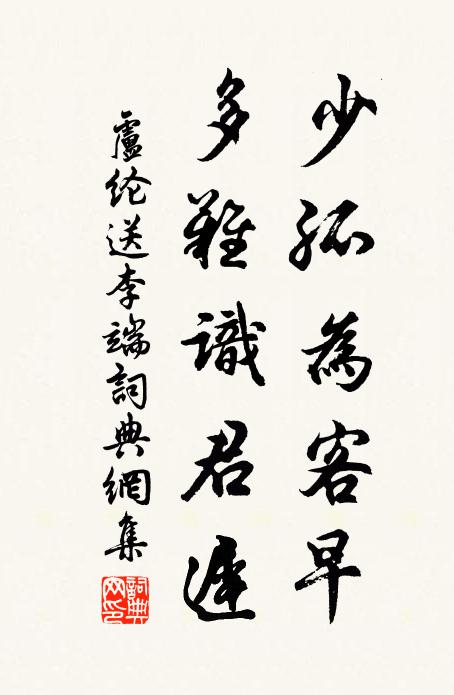 少孤為客早
多難識君遲
盧纶送李端詞典網集
詞典網印